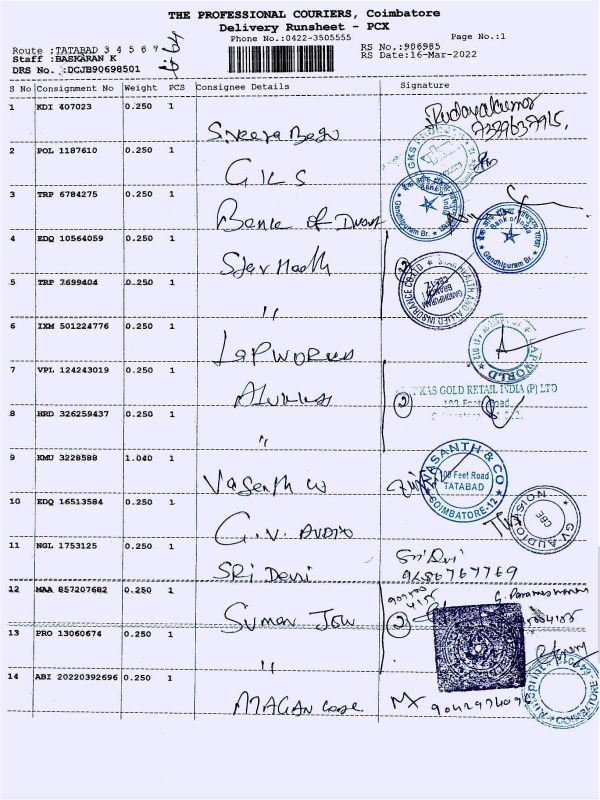 THE PROFESSIONAL COURIERS, Coimbatore
Delivery Runsheet - PCX
Phone No.:0422-3505555
Page No.:1
Route :TATABAD 3 4 5 6 9
Staff :BASKARAN K
DRS No. :DCJB90698501
RS No.:906985
RS Date:16-Mar-2022
S No Consignment No Weight PCS Consignee Details Signature
1 KDI 407023 0.250 1
2 POL 1187610 0.250 1
GKS
3 TRP 6784275 0.250 1
Bank of
Bank of India
Gandhipuram Br.
Bank of India
Gandhipuram Br.
4 EDQ 10564059 0.250 1
Star Health
STAR HEALTH AND ALLIED INSURANCE CO LTD
5 TRP 7699404 0.250 1
"
6 IXM 501224776 0.250 1
7 VPL 124243019 0.250 1
KAS GOLD RETAIL INDIA (P) LTD
100 Feet Road
2
8 HRD 326259437 0.250 1
"
9 KMU 3228588 1.040 1
Vasanth
VASANTH & CO
100 Feet Road
TATABAD
COIMBATORE-12
10 EDQ 16513584 0.250 1
G.V. AUDIO
GV AUDIO VISION
CBE
11 NGL 1753125 0.250 1
SRI Devi
Sri Devi
12 MAA 857207682 0.250 1
Suman
2
13 PRO 13060674 0.250 1
"
14 ABI 20220392696 0.250 1